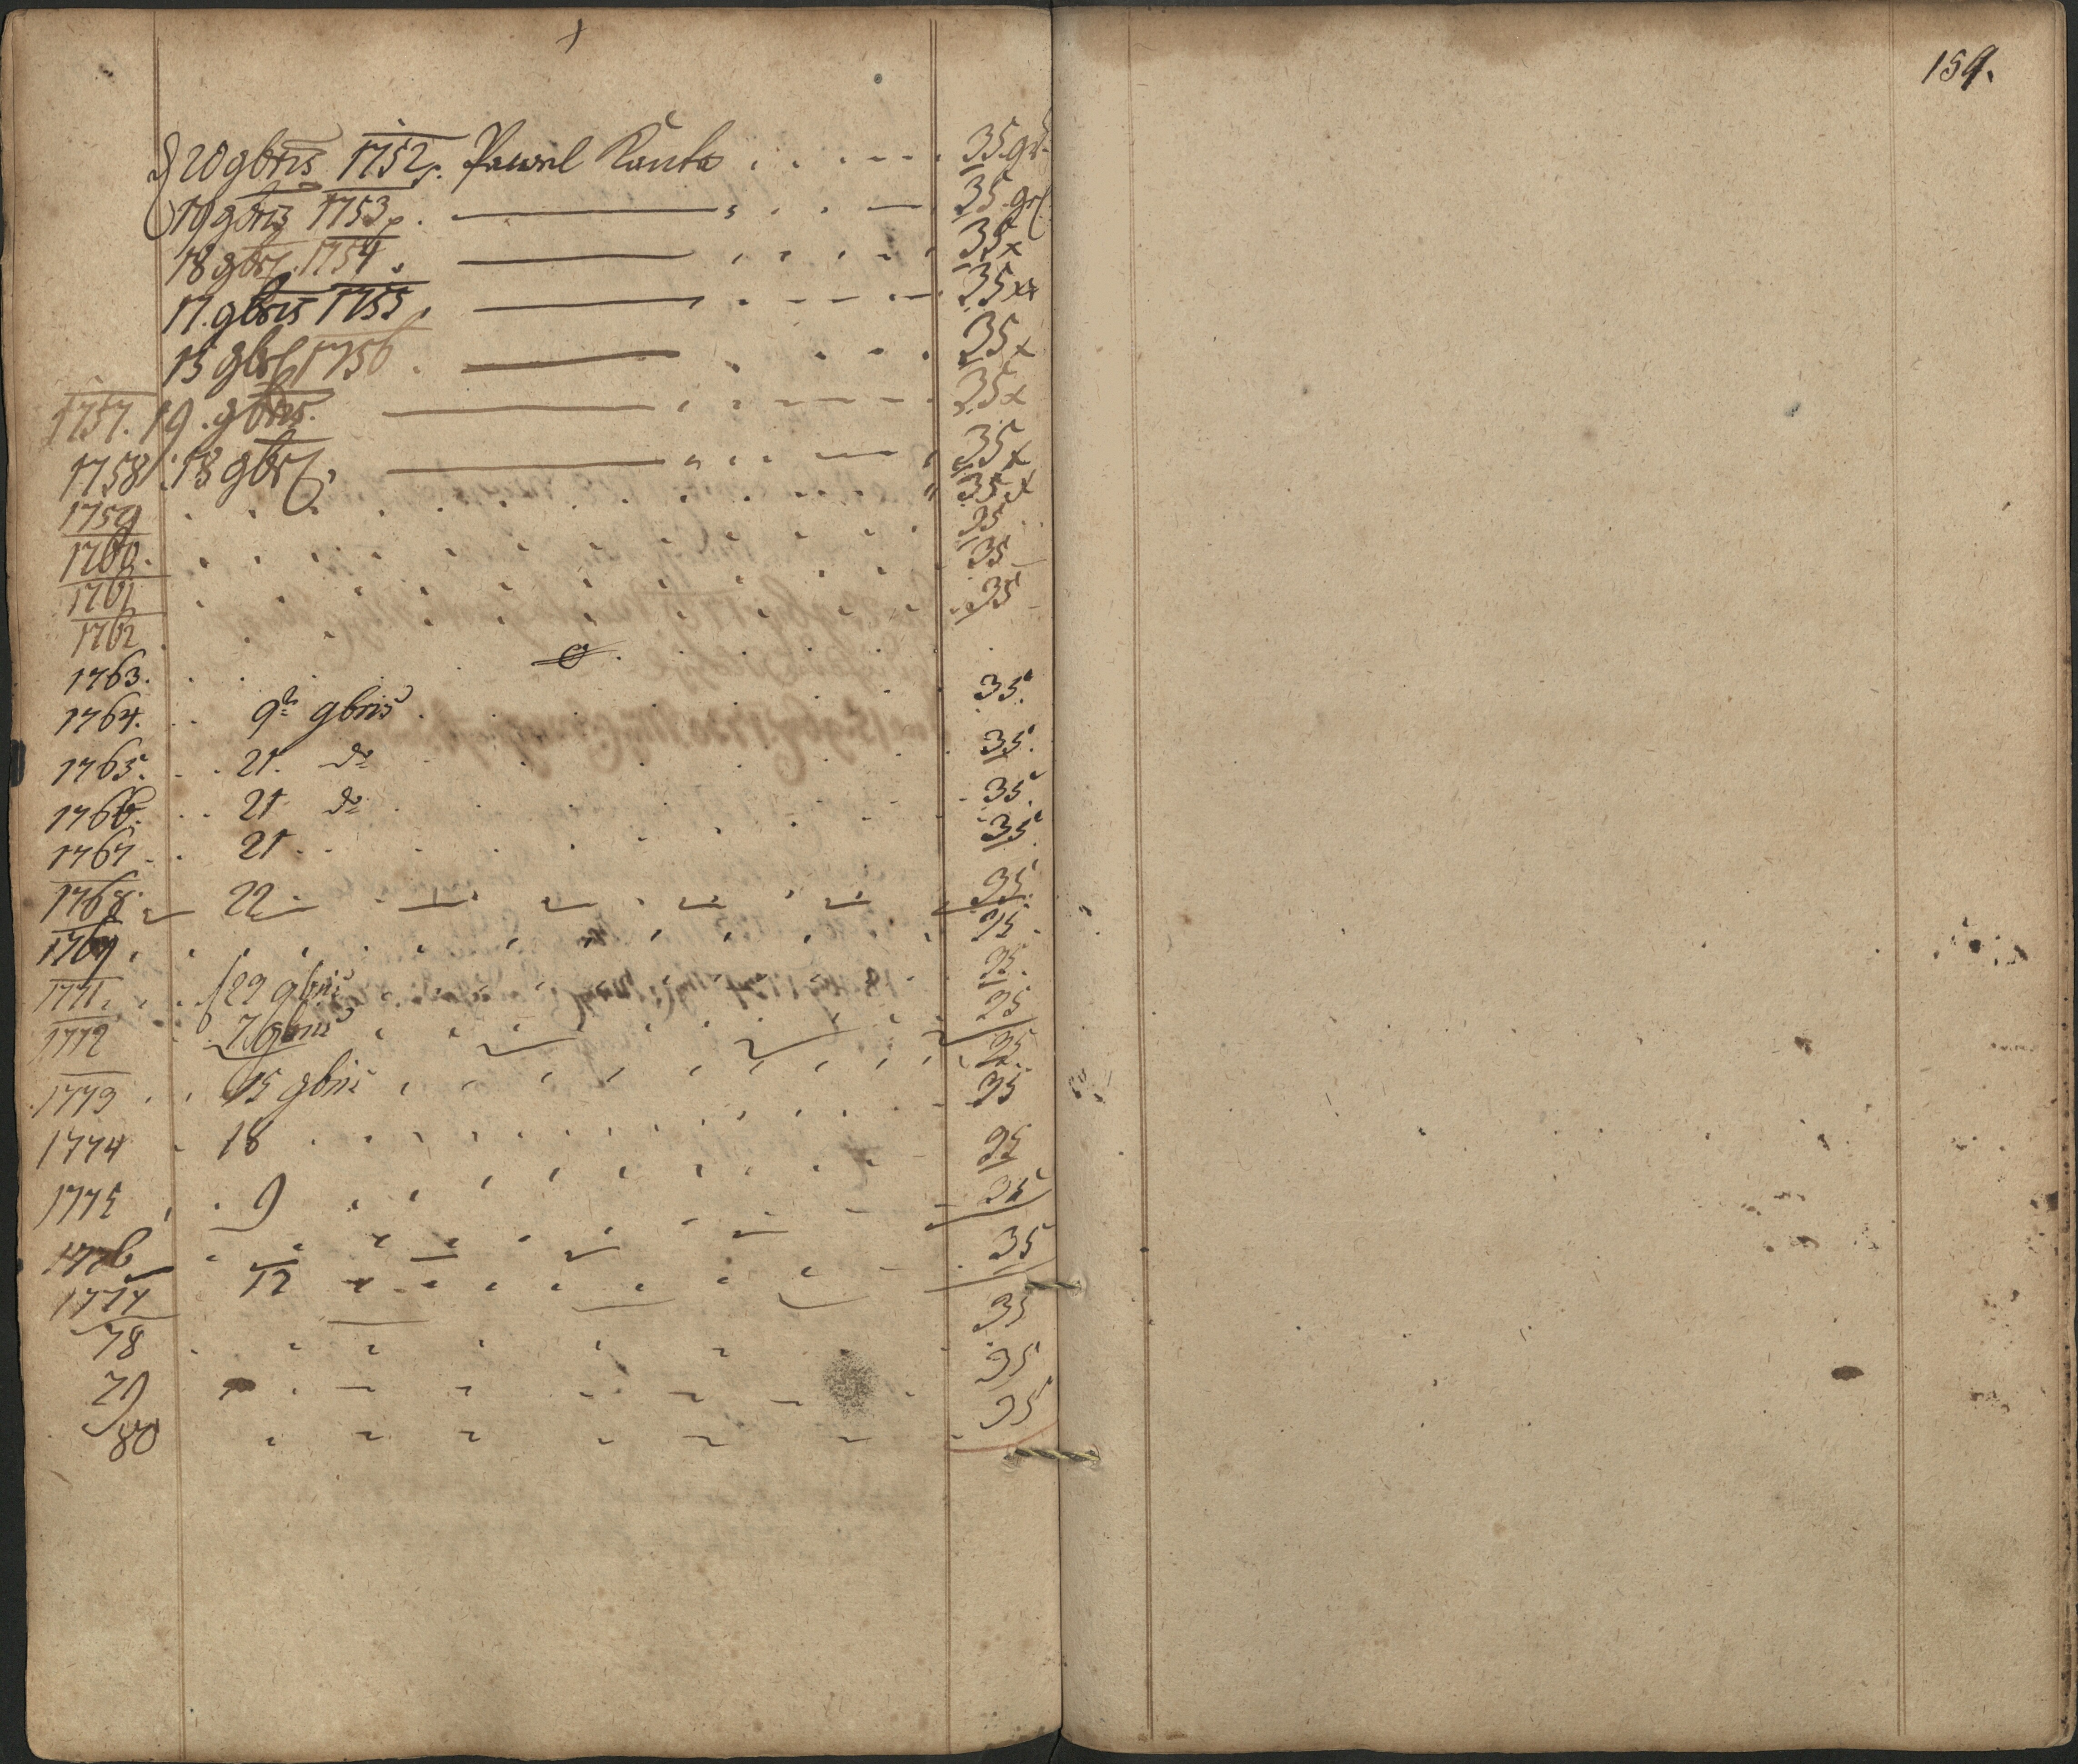 20 9bris 1752. Pawel Kanta . . . . . . 35 gr
19 9bris 1753. ——— 35 gr
18 9br 1754. ——— 35 x
17. 9bris 1755. ——— 35 xr
15 9br 1756. ——— 35 x
1757. 19. 9bris. ——— 35 x
1758. 18 9br. ——— 35 x
1759 . . . . 35 x
1760. . . . . 35
1761 . . . . 35
1762 . . . . 35
1763. . . . . 0 . . . .
1764. . . 9 9bris . . . . 35.
1765. . . 21. do . . . . 35.
1766. . . 21 do . . . . 35.
1767 . . 21 . . . . 35.
1768. 22 . . . . 35.
1769 . . . . 35.
1771. . . 29 9bris . . . . 35.
1772 . 7 9bris . . . . 35
35.
1773 . . 15 9bris . . . . 35
1774 . 18 . . . . 35
1775 . . 9 . . . . 35
1776 . . . . 35
1777 12 . . . . 35
78 . . . . 35
79 . . . . 35
80 . . . .
159.